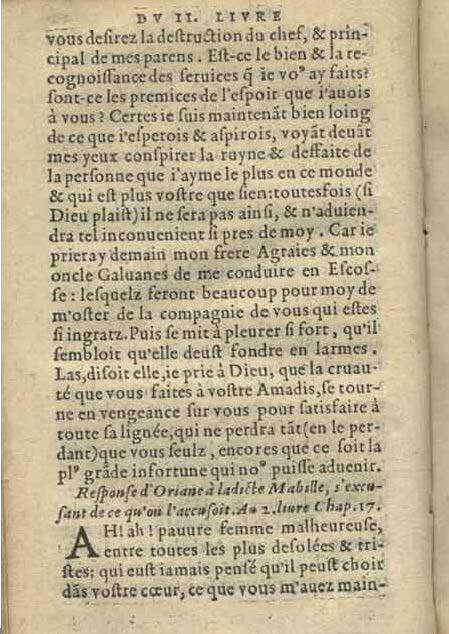 DV II. LIVRE
vous desirez la destruction du chef, & prin-
cipal de mes parens. Est-ce le bien & la re-
cognoissance des seruices q̃ ie vo⁹ ay faits?
sont-ce les premices de l'espoir que i'auois
à vous? Certes ie suis maintenãt bien loing
de ce que i'esperois & aspirois, voyãt deuãt
mes yeux conspirer la ruyne & deffaite de
la personne que i'ayme le plus en ce monde
& qui est plus vostre que sien: toutesfois (si
Dieu plaist) il ne sera pas ainsi, & n'aduien-
dra tel inconuenient si pres de moy. Car ie
prieray demain mon frere Agraies & mon
oncle Galuanes de me conduire en Escos-
se: lesquelz feront beaucoup pour moy de
m'oster de la compagnie de vous qui estes
si ingratz. Puis se mit à pleurer si fort, qu'il
sembloit qu'elle deust fondre en larmes.
Las, disoit elle, ie prie à Dieu, que la cruau-
té que vous faites à vostre Amadis, se tour-
ne en vengeance sur vous pour satisfaire à
toute sa lignée, qui ne perdra tãt (en le per-
dant) que vous seulz, encores que ce soit la
pl⁹ grãde infortune qui no⁹ puisse aduenir.
Response d'Oriane à ladicte Mabille, s'excu-
sant de ce qu'on l'accusoit. Au 2. liure Chap. 17.
AH! ah! pauure femme malheureuse,
entre toutes les plus desolées & tri-
stes: qui eust iamais pensé qu'il peust choir
dãs vostre cœur, ce que vous m'auez main-